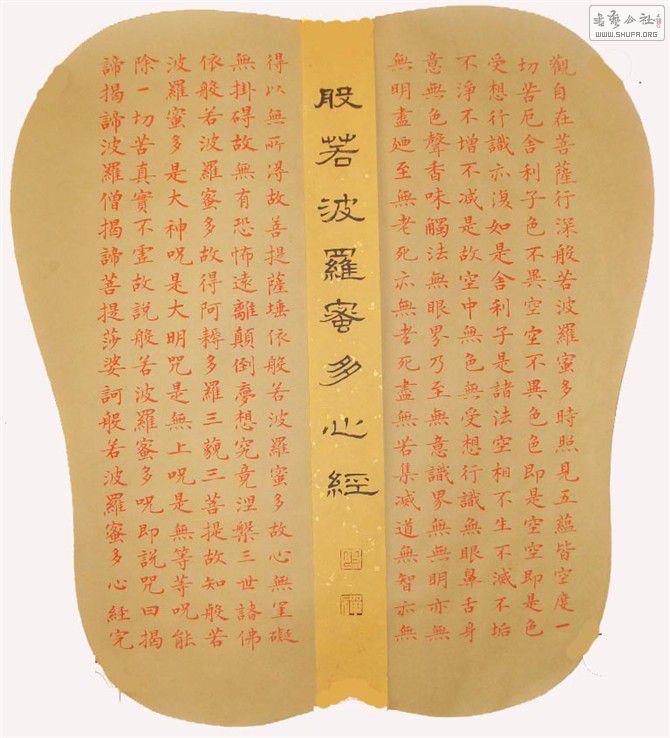 書藝公社
WWW.SHUFA.ORG
觀自在菩薩行深般若波羅蜜多時照見五蘊皆空度一
切苦厄舍利子色不異空空不異色色即是空空即是色
受想行識亦復如是舍利子是諸法空相不生不滅不垢
不淨不增不減是故空中無色無受想行識無眼鼻舌身
意無色聲香味觸法無眼界乃至無意識界無無明亦無
無明盡廼至無老死亦無老死盡無苦集滅道無智亦無
般若波羅蜜多心經
得以無所得故菩提薩埵依般若波羅蜜多故心無罣礙
無掛碍故無有恐怖遠離顛倒夢想究竟涅槃三世諸佛
依般若波羅蜜多故得阿耨多羅三藐三菩提故知般若
波羅蜜多是大神呪是大明咒是無上呪是無等等呪能
除一切苦真實不虛故說般若波羅蜜多呪即說咒曰揭
諦揭諦波羅僧揭諦菩提莎婆訶般若波羅蜜多心經完